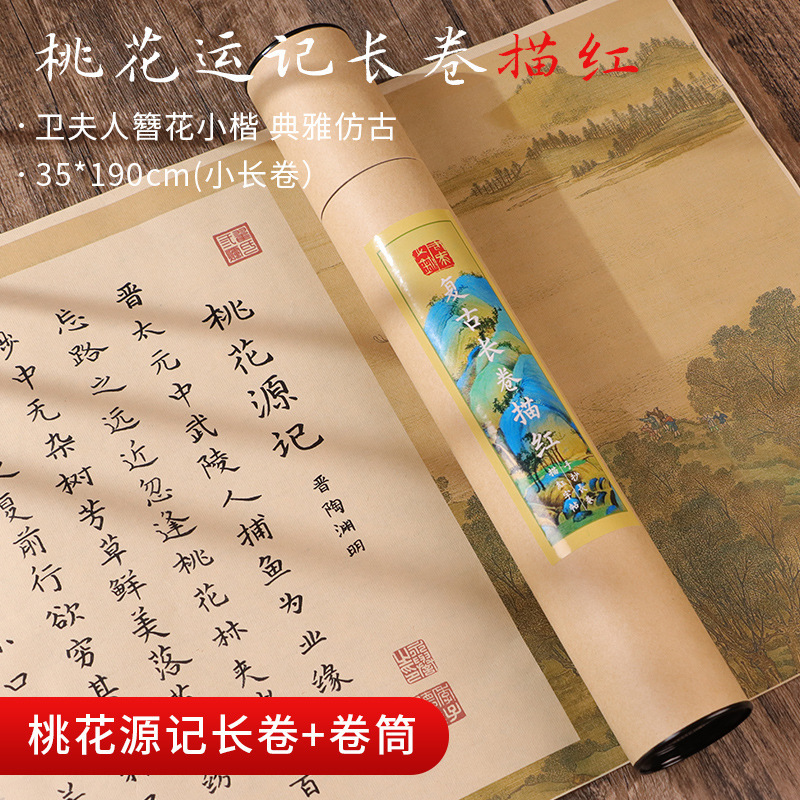 桃花运记长卷描红
·卫夫人簪花小楷 典雅仿古
·35*190cm(小长卷)
桃花源记
晋陶渊明
晋太元中武陵人捕鱼为业缘
忘路之远近忽逢桃花林夹
步中无杂树芳草鲜美落
复前行欲穷其
口
百
纷
复古长卷描红
桃花源记长卷+卷筒